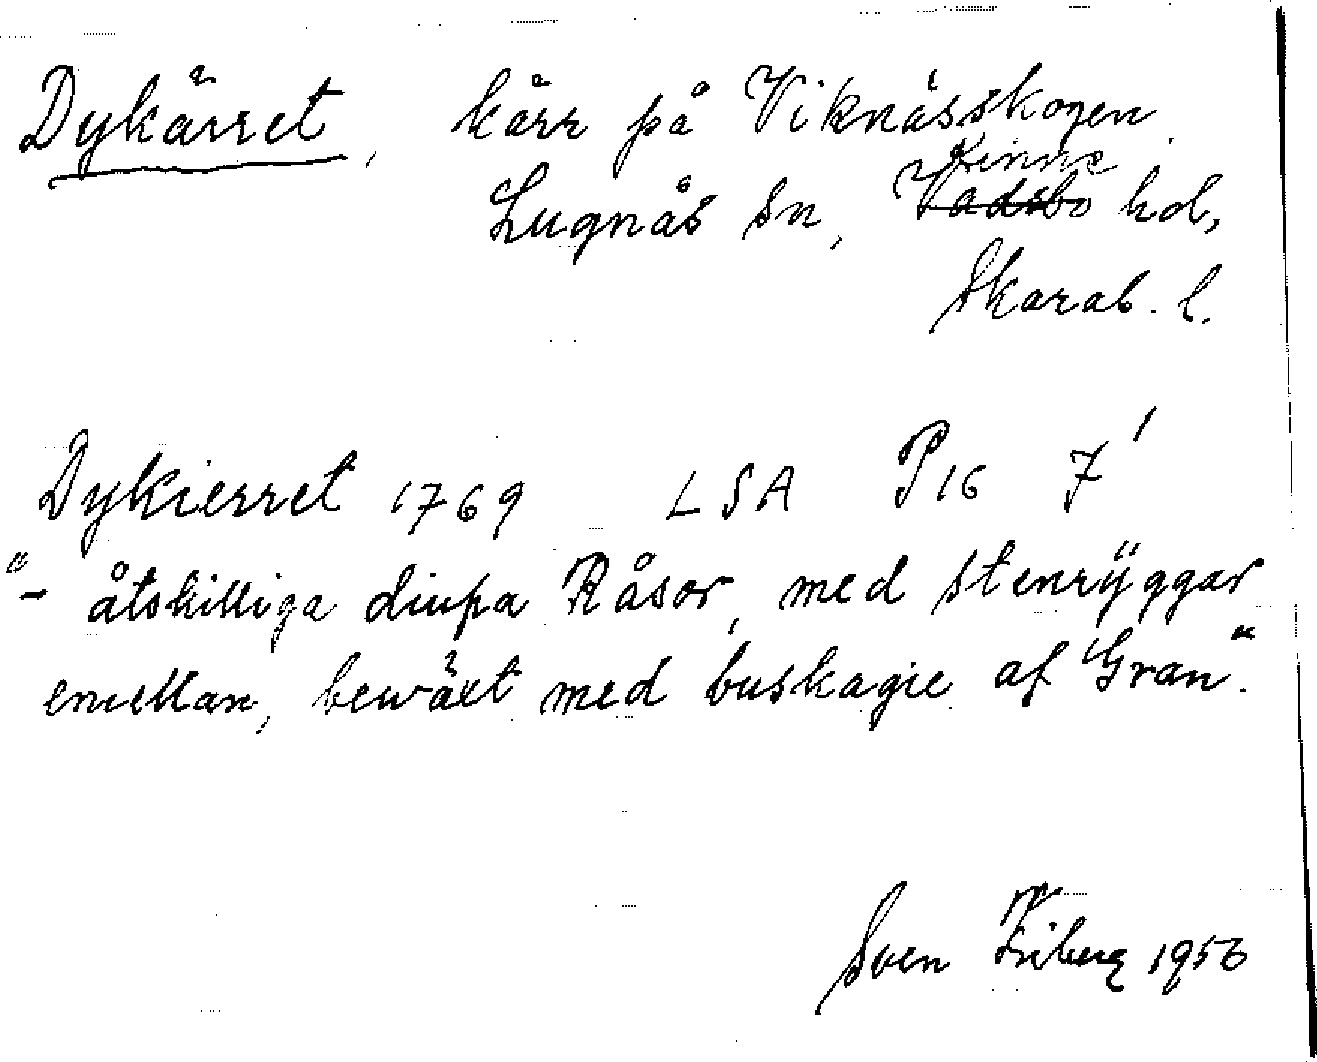 Dykärret, kärr på Viknässkogen
Kinne
Lugnås sn, Vadsbo hd,
Skarab. l.
Dykierret 1769 LSA P16 7¹
"- åtskilliga diupa Råsor, med stenrÿggar
emellan, bewäxt med buskagie af Gran".
Sven Friberg 1956